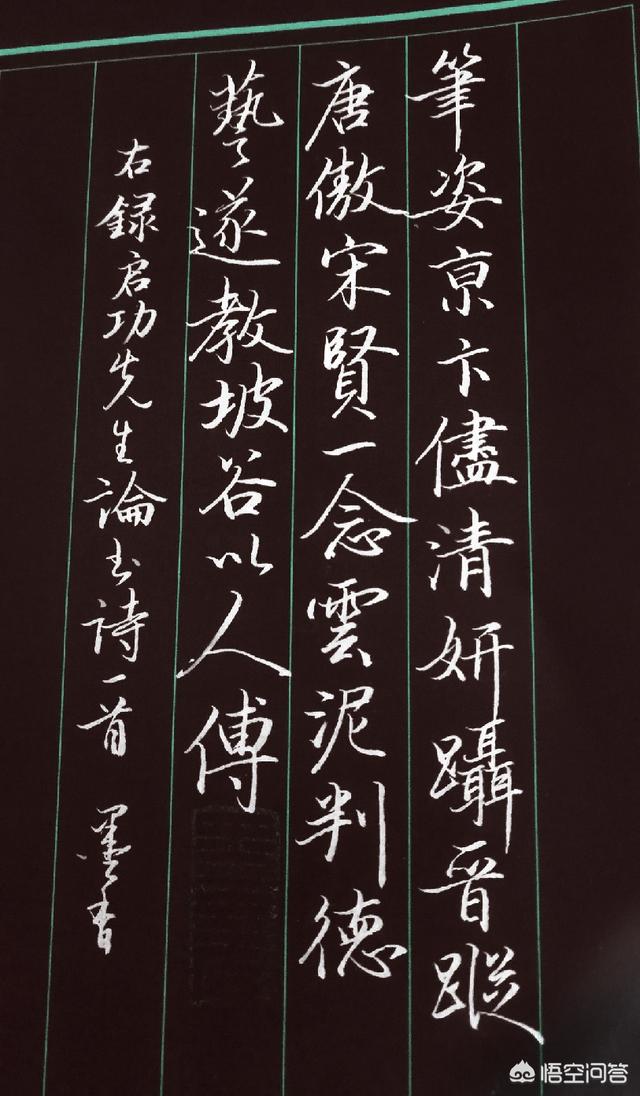 筆姿京卞儘清妍躡晉蹤
唐傲宋賢一念雲泥判德
藝遂教坡谷以人傳
右録启功先生論书詩一首 墨香
悟空问答